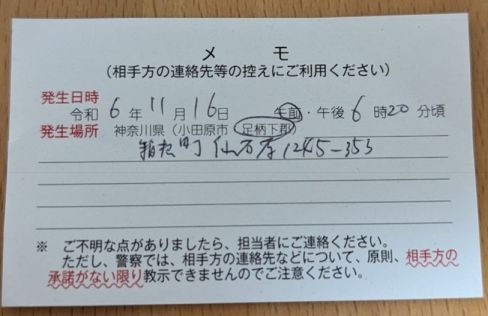 メモ
(相手方の連絡先等の控えにご利用ください)
発生日時
令和 6 年 11 月 16 日 午前・午後 6 時 20 分頃
発生場所 神奈川県(小田原市 足柄下郡
箱根町仙石原1245-353
※ ご不明な点がありましたら、担当者にご連絡ください。
ただし、警察では、相手方の連絡先などについて、原則、相手方の
承諾がない限り教示できませんのでご注意ください。